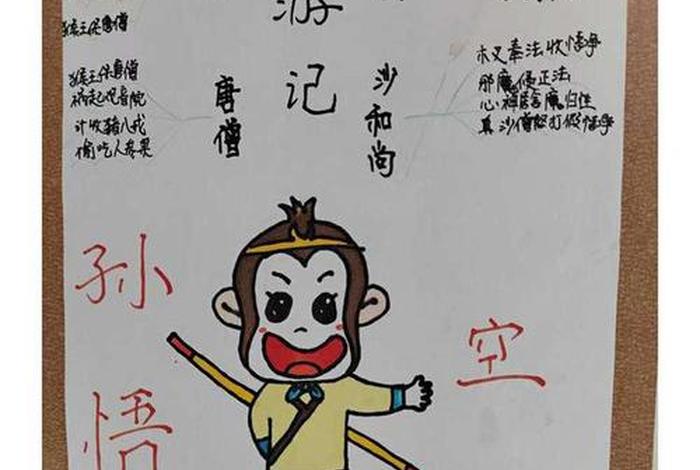 游
记
猴王保唐僧
猴王保唐僧
祸起观音院
计收猪八戒
偷吃人参果
唐僧
沙和尚
木叉奉法收悟净
那魔侵正法
心神居舍魔归性
真沙僧怒打假悟净
孙
悟
空